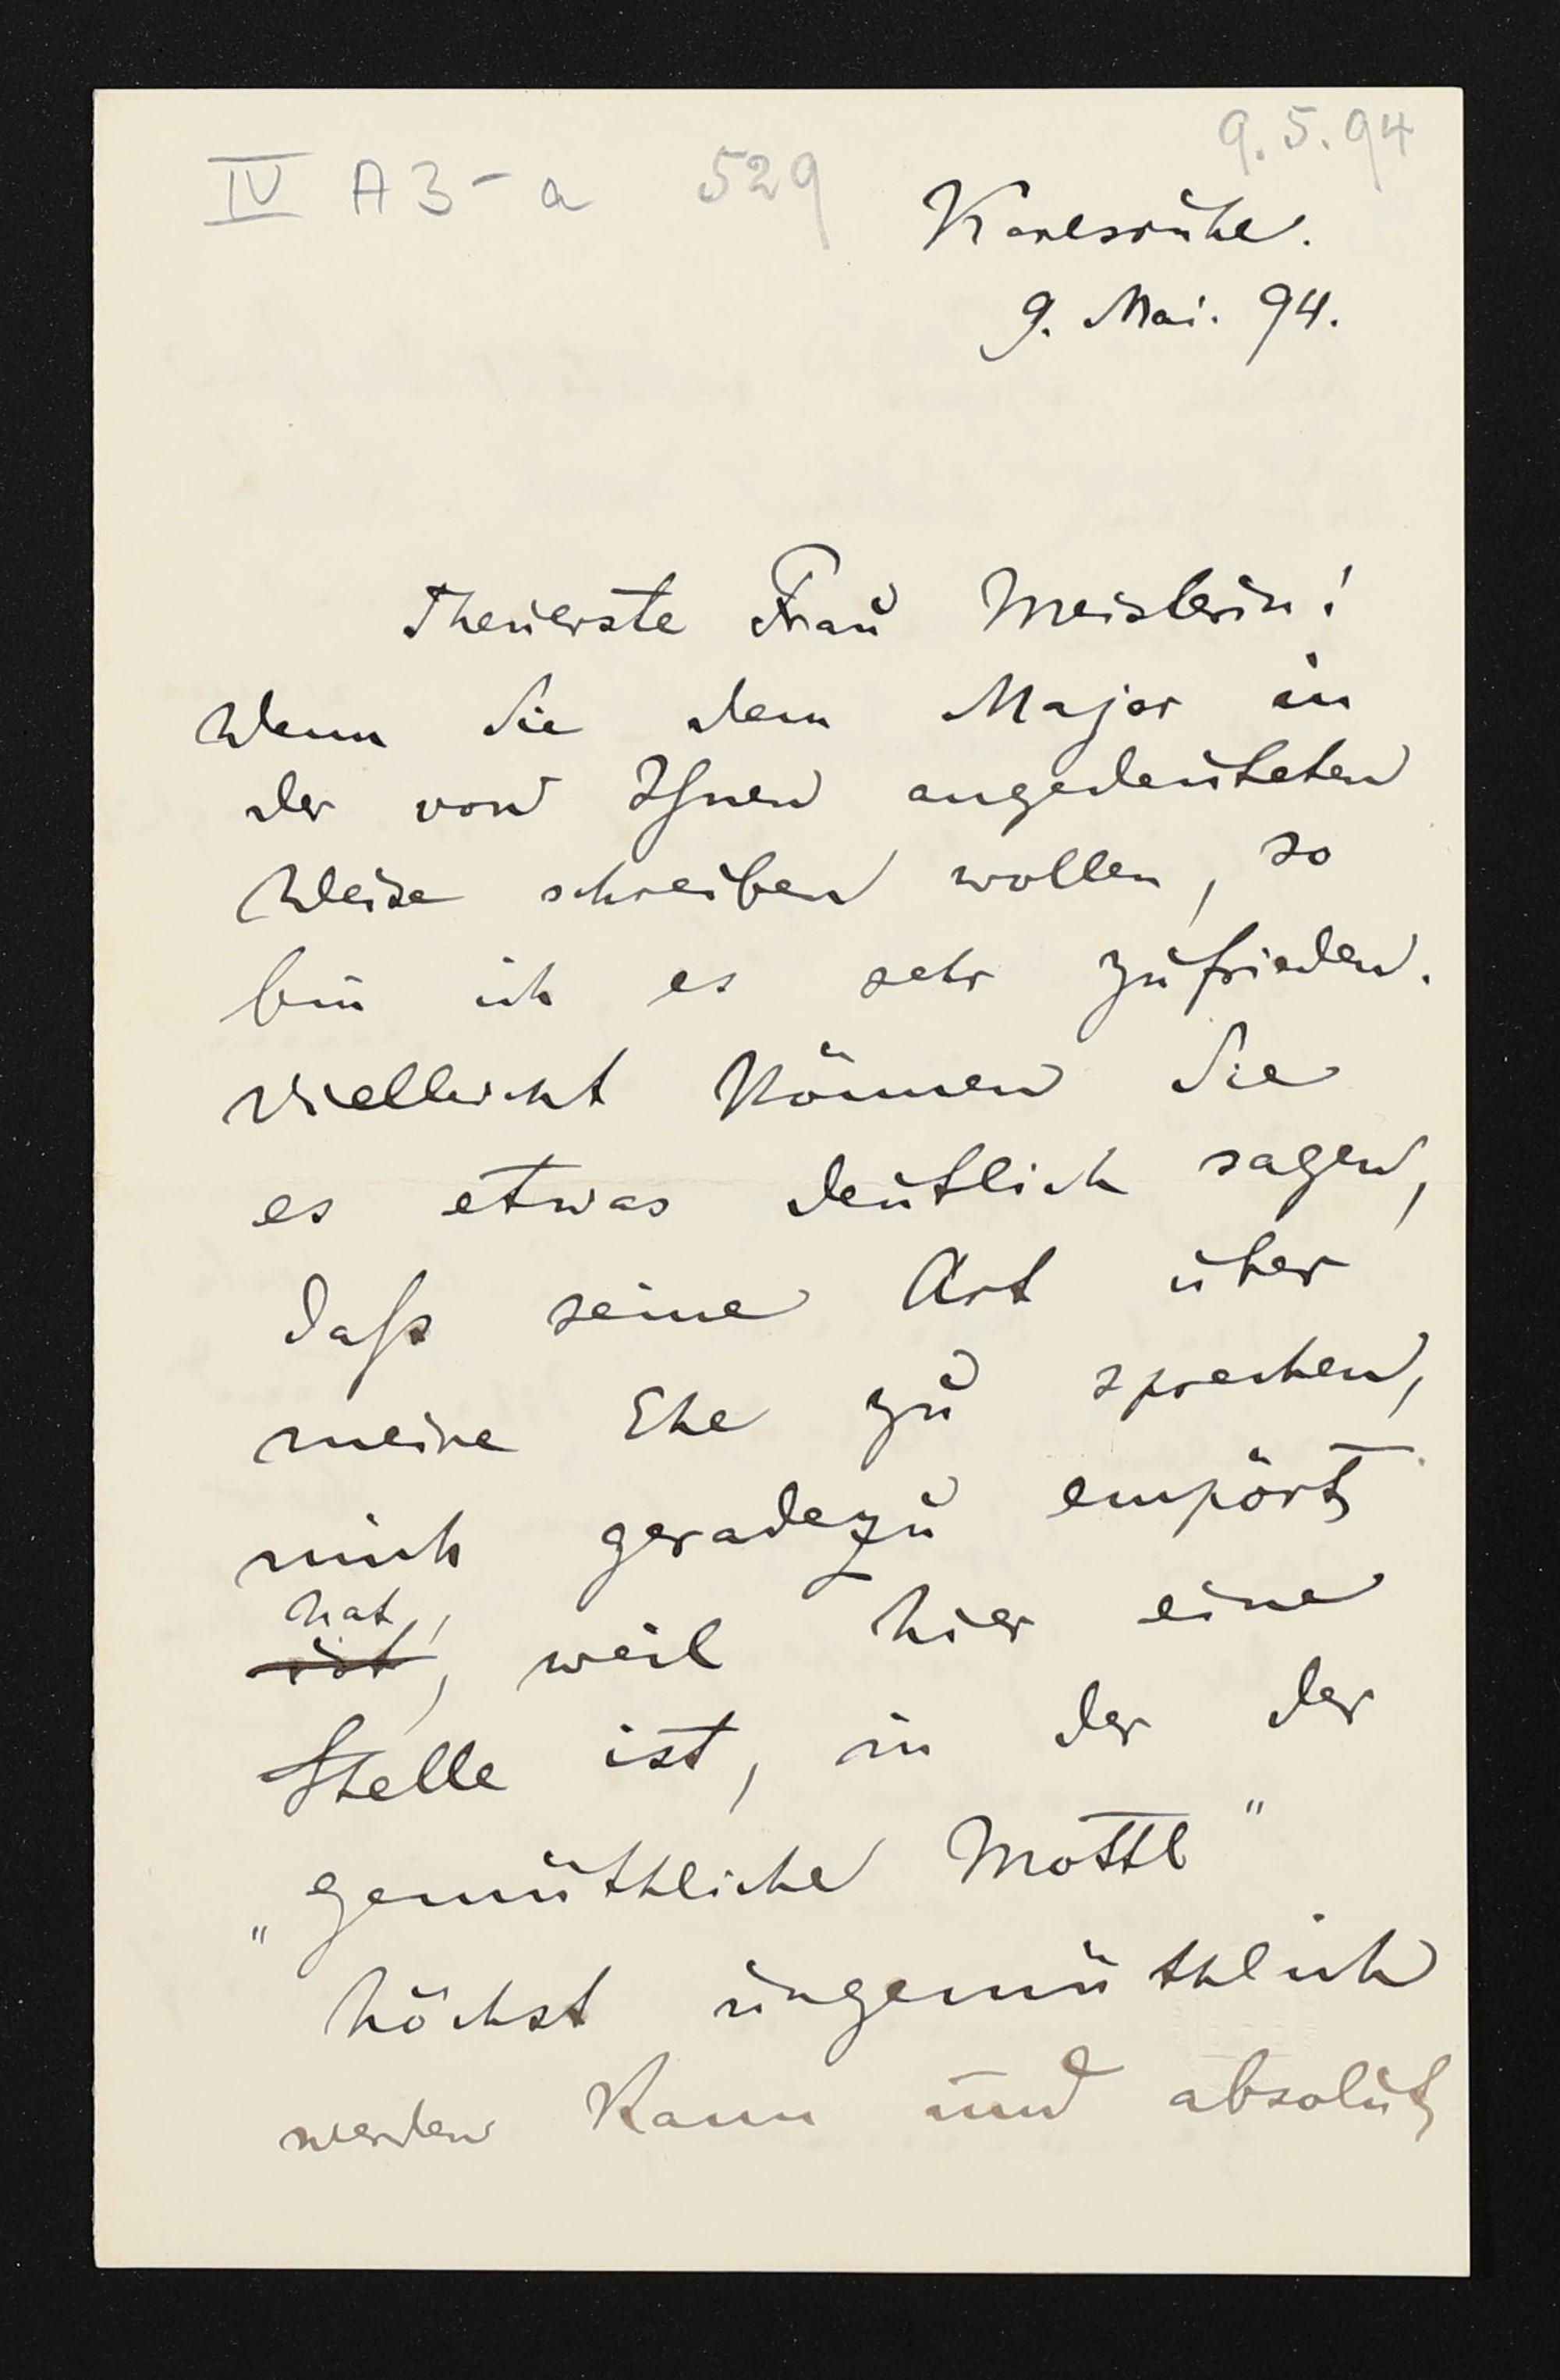 9.5.94
IV A3-a 529
Karlsruhe.
9. Mai. 94.
Theuerste Frau Meisterin!
Wenn Sie dem Major in
der von Ihnen angedeuteten
Weise schreiben wollen, so
bin ich es sehr zufrieden.
Vielleicht können Sie
es etwas deutlich sagen,
daß seine Art über
meine Ehe zu sprechen,
mich geradezu empört
hat,
ist, weil hier eine
Stelle ist, in der der
„gemüthliche Mottl"
höchst ungemüthlich
werden kann und absolut